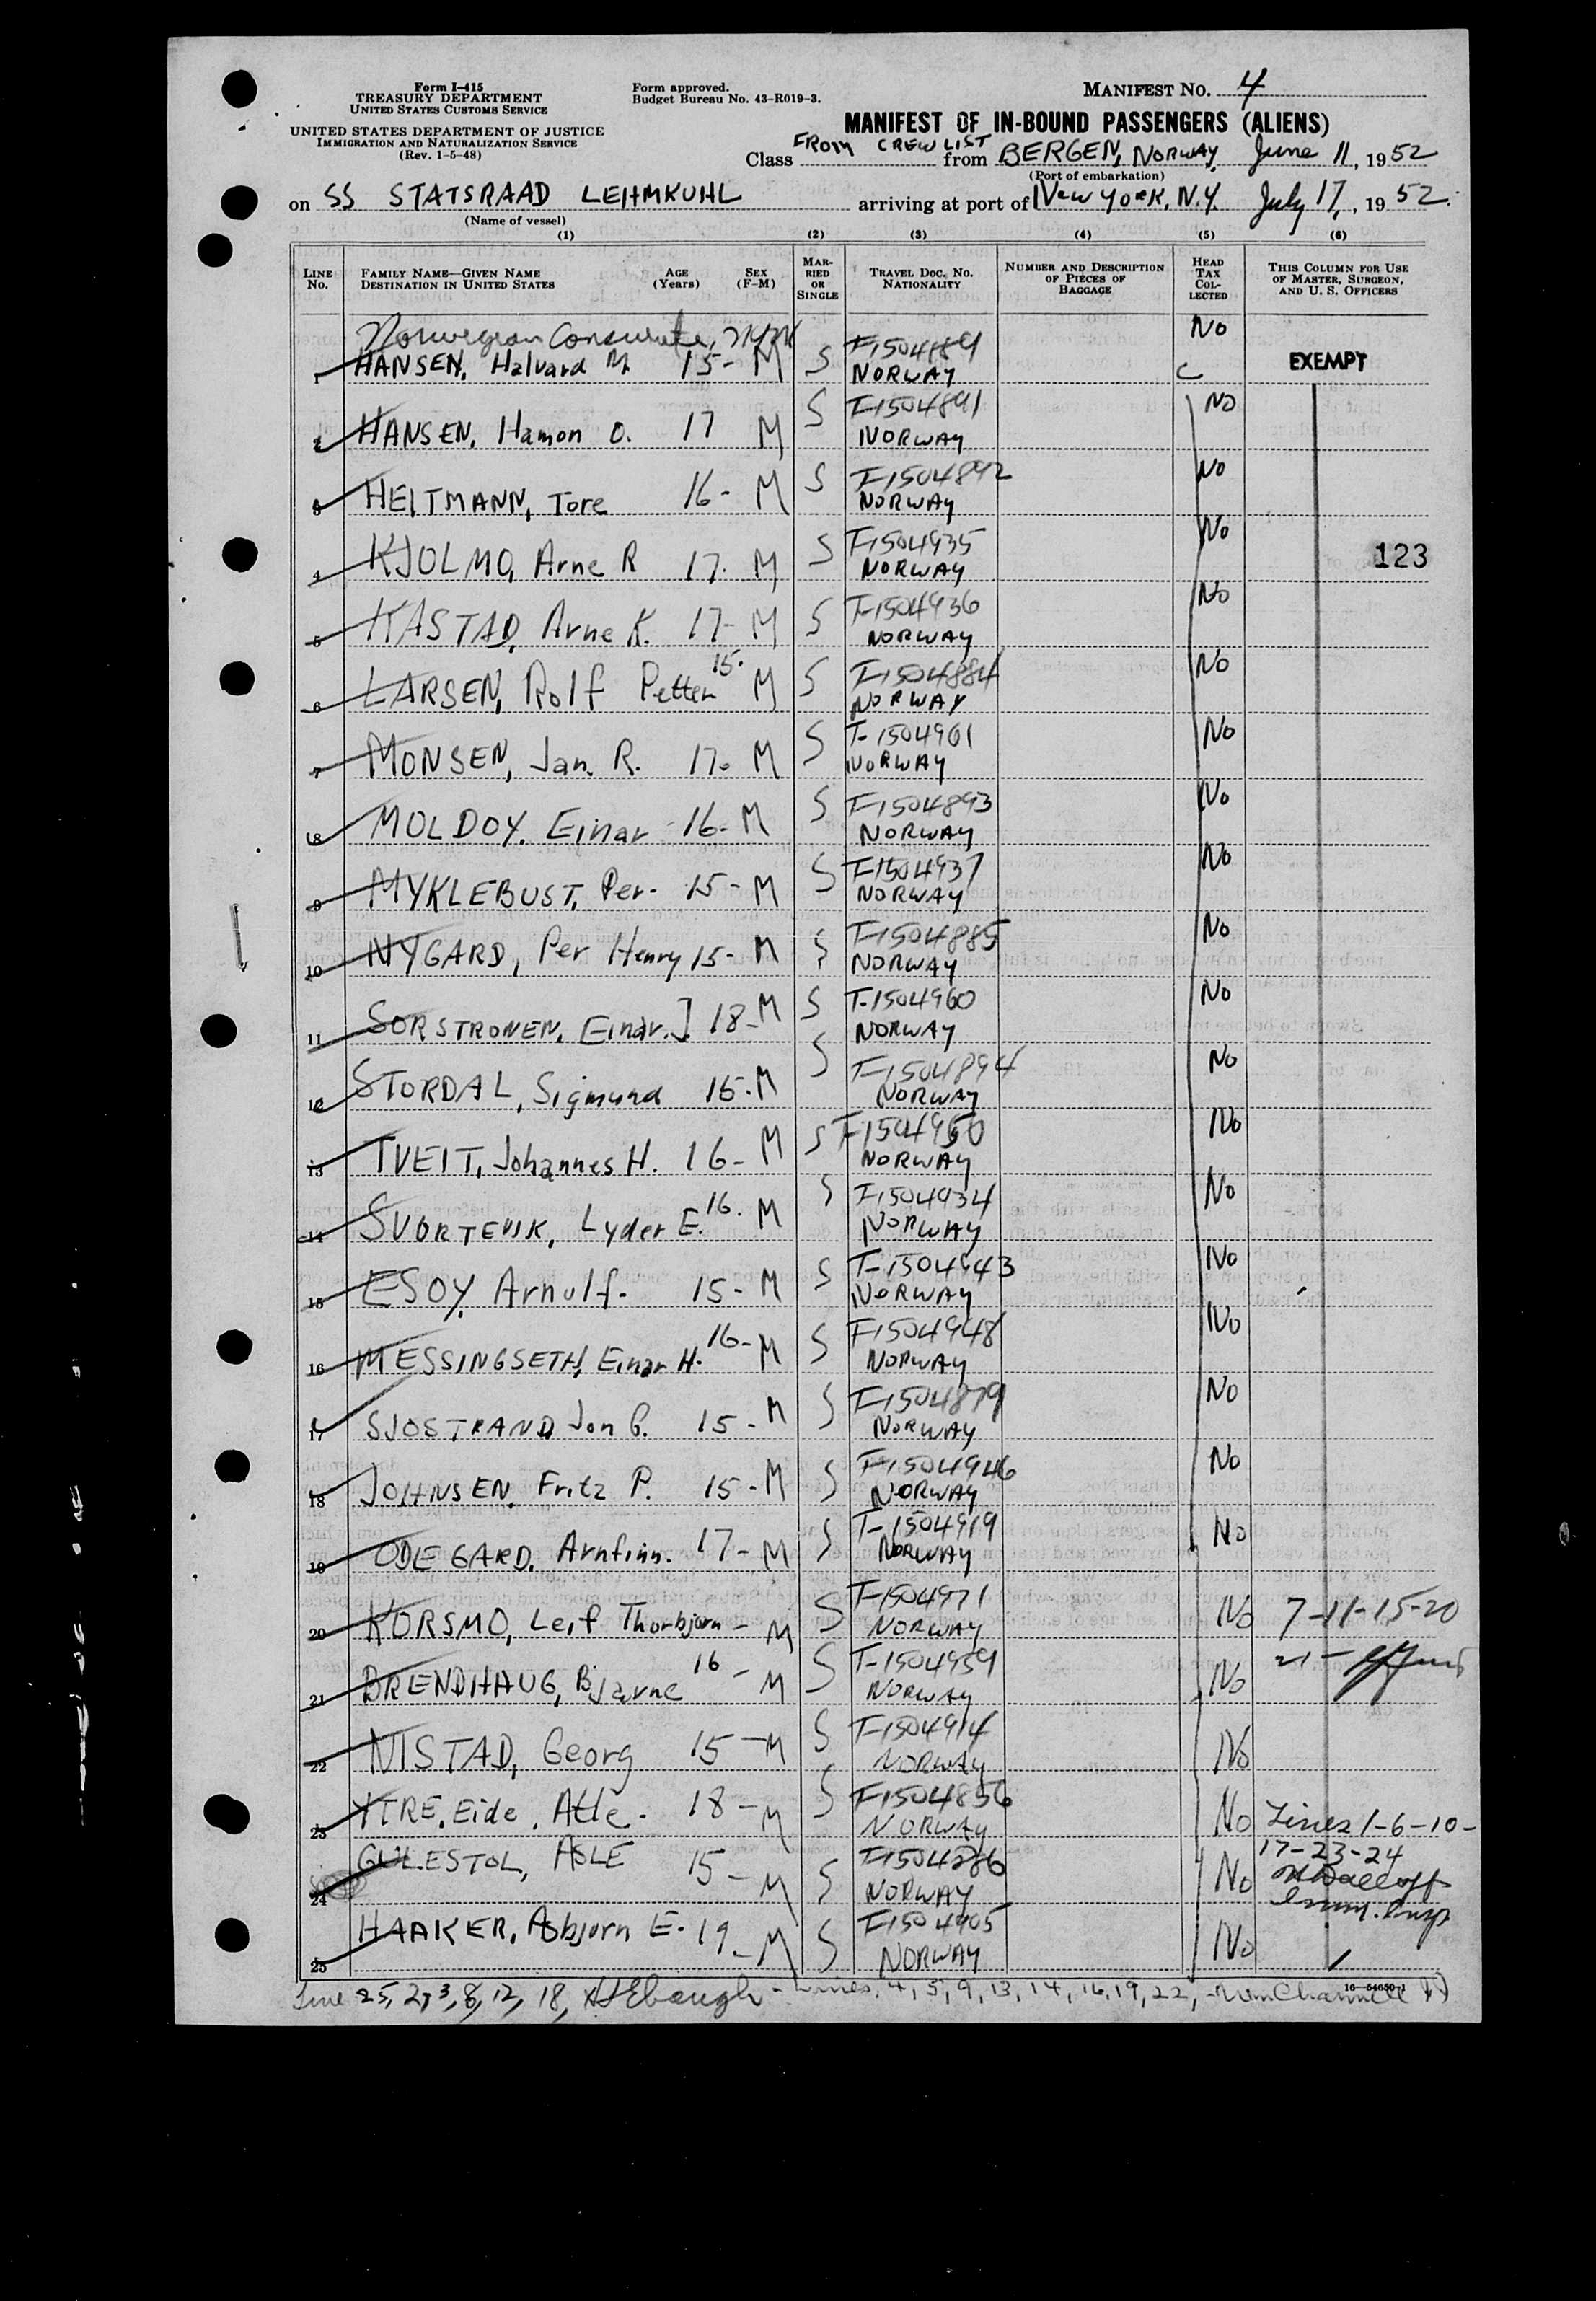 Form I-415
TREASURY DEPARTMENT
UNITED STATES CUSTOMS SERVICE
UNITED STATES DEPARTMENT OF JUSTICE
IMMIGRATION AND NATURALIZATION SERVICE
(Rev. 1-5-48)
Form approved.
Budget Bureau No. 43-R019-3.
MANIFEST NO. 4
MANIFEST OF IN-BOUND PASSENGERS (ALIENS)
Class FROM CREW LIST from BERGEN, NORWAY, June 11, 1952
(Port of embarkation)
on SS STATSRAAD LEHMKUHL arriving at port of New York, N.Y. July 17, 1952.
(Name of vessel)
(1) (2) (3) (4) (5) (6)
LINE No. FAMILY NAME—GIVEN NAME DESTINATION IN UNITED STATES AGE (Years) SEX (F-M) MARRIED OR SINGLE TRAVEL DOC. NO. NATIONALITY NUMBER AND DESCRIPTION OF PIECES OF BAGGAGE HEAD TAX COLLECTED THIS COLUMN FOR USE OF MASTER, SURGEON, AND U. S. OFFICERS
Norwegian Consulate, NYNY
1 HANSEN, Halvard M. 15- M S T-1504889 NORWAY No EXEMPT
2 HANSEN, Hamon O. 17 M S T-1504891 NORWAY No
3 HEITMANN, Tore 16- M S T-1504892 NORWAY No
4 KJOLMO, Arne R 17. M S T-1504935 NORWAY No
123
5 KASTAD, Arne K. 17- M S T-1504936 NORWAY No
6 LARSEN, Rolf Petter 15. M S T-1504884 NORWAY No
7 MONSEN, Jan. R. 17. M S T-1504961 NORWAY No
8 MOLDOY. Einar 16- M S T-1504893 NORWAY No
9 MYKLEBUST, Per- 15- M S T-1504937 NORWAY No
10 NYGARD, Per Henry 15- M S T-1504885 NORWAY No
11 SORSTRONEN, Einar. J 18- M S T-1504960 NORWAY No
12 STORDAL, Sigmund 15. M S T-1504894 NORWAY No
13 TVEIT, Johannes H. 16- M S T-1504950 NORWAY No
14 SVORTEVIK, Lyder E. 16. M S T-1504934 NORWAY No
15 ESOY, Arnulf- 15- M S T-1504943 NORWAY No
16 MESSINGSETH, Einar H. 16- M S T-1504948 NORWAY No
17 SJOSTRAND Jon G. 15- M S T-1504879 NORWAY No
18 JOHNSEN, Fritz P. 15- M S T-1504946 NORWAY No
19 ODEGARD, Arnfinn. 17- M S T-1504919 NORWAY No
20 KORSMO, Leif Thorbjorn- M S T-1504971 NORWAY No 7-11-15-20
21 BRENDHAUG, Bjarne 16- M S T-1504959 NORWAY No 21-
22 NISTAD, Georg 15- M S T-1504914 NORWAY No
23 YTRE, Eide, Atle- 18- M S T-1504856 NORWAY No Lines 1-6-10-
24 GULESTOL, ASLE 15- M S T-1504286 NORWAY No 17-23-24
Imm. Insp
25 HAAKER, Asbjorn E. 19- M S T-1504905 NORWAY No
Line 25, 2, 3, 8, 12, 18, - Lines, 4, 5, 9, 13, 14, 16, 19, 22,
16—54650-1